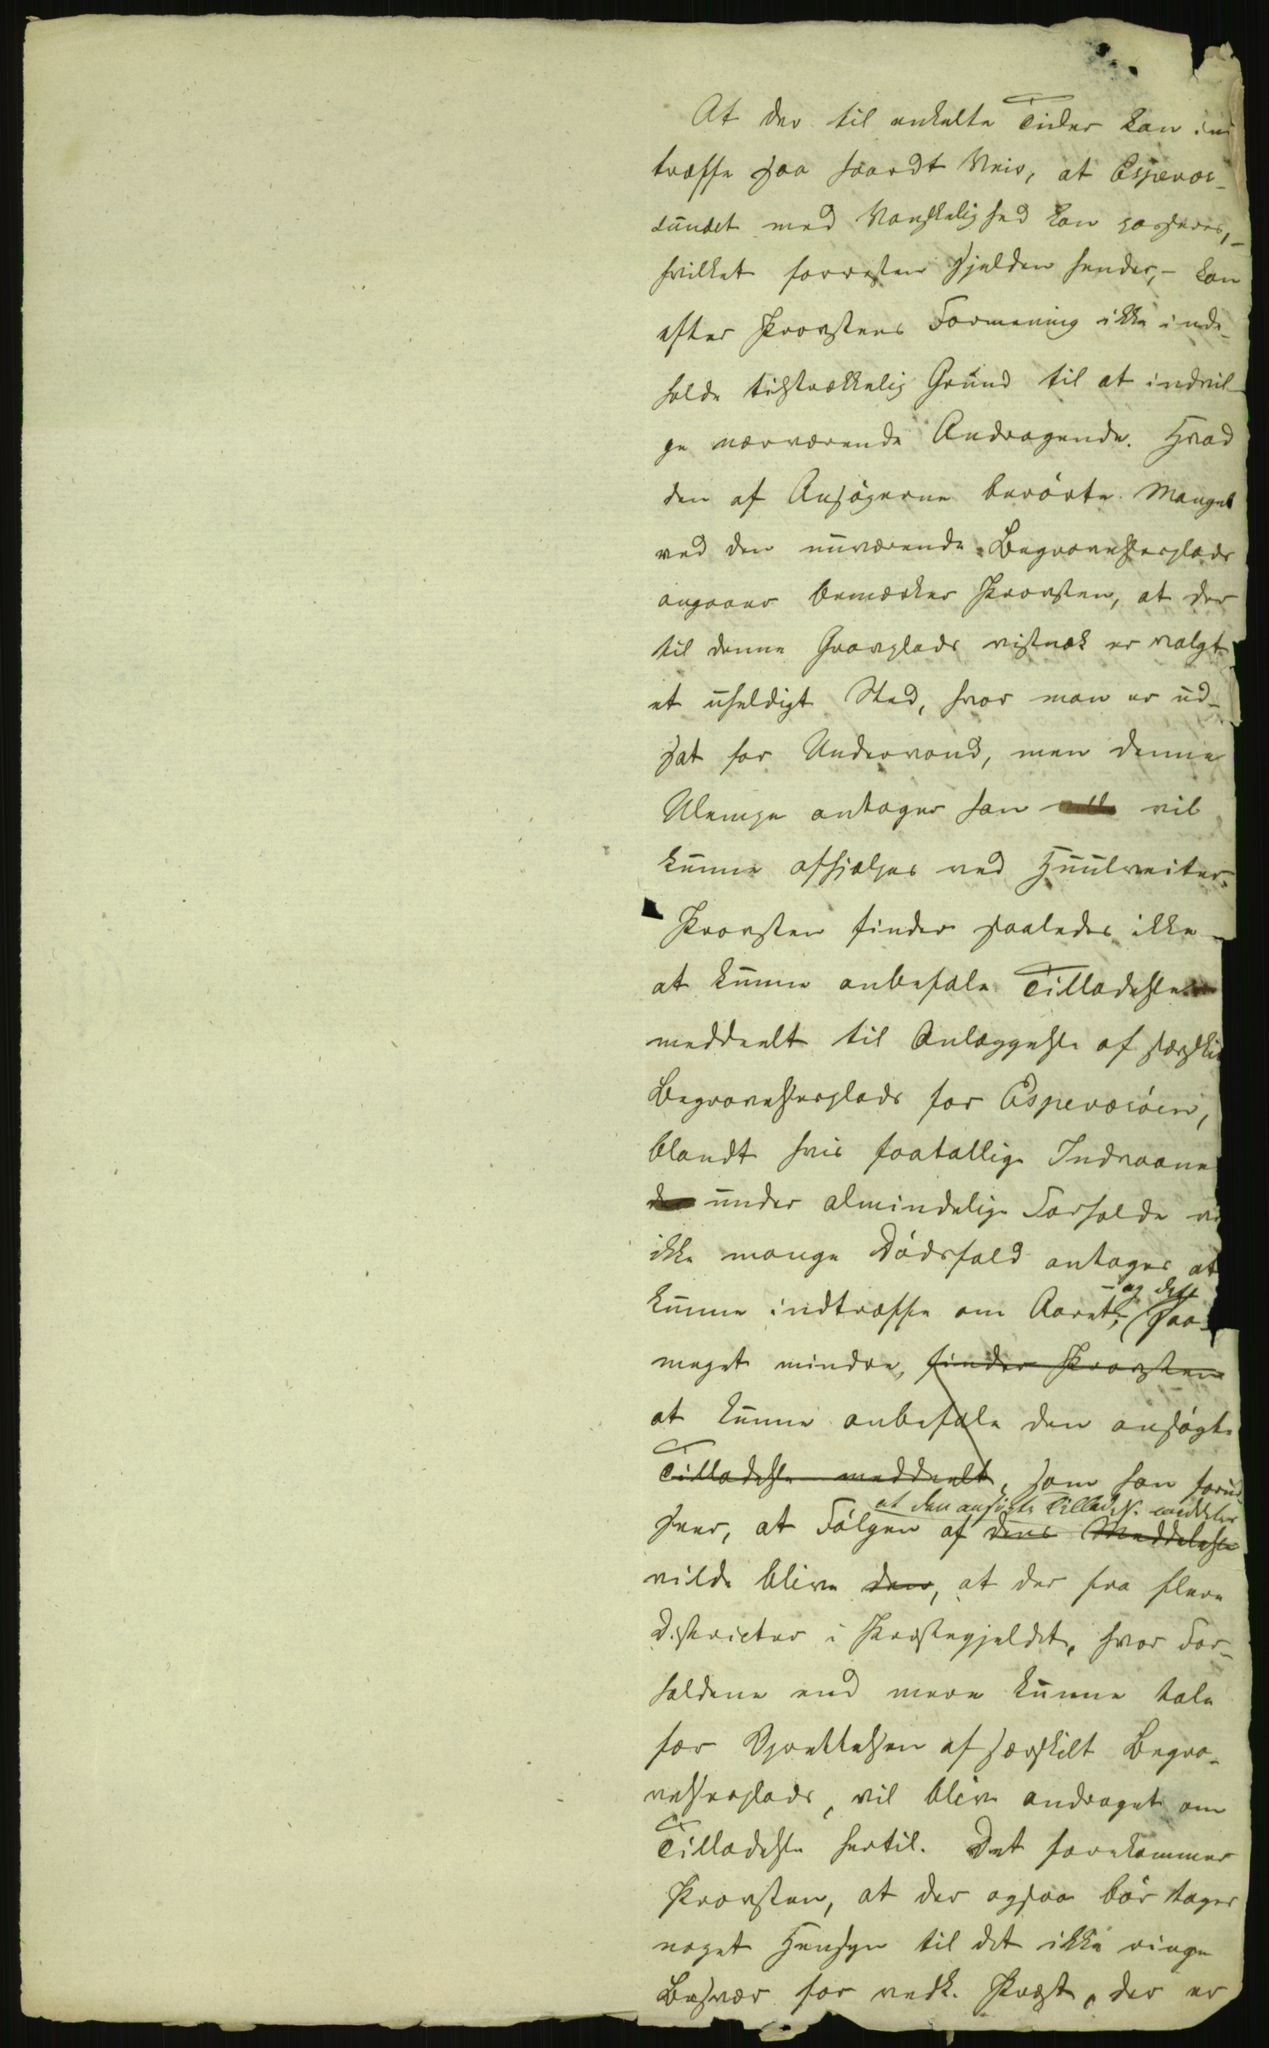 At der til enkelte Tider kan ind
træffe saa haardt Veir, at Espevær-
sundet med Vanskelighed kan passeres,-
hvilket forresten sjelden hender,- kan
efter Provstens Formening ikke inde-
holde tilstrækkelig Grund til at indvil-
ge nærværende Andragende. Hvad
den af Ansøgerne berørte Mangel
ved den nuværende Begravelsesplads
angaaer bemærker Provsten, at der
til denne Gravplads vistnok er valgt
et uheldigt Sted, hvor man er ud-
sat for Undervand, men denne
Ulempe antager han vil
kunne afhjælpes ved Huulveiter.
Provsten finder saaledes ikke
at kunne anbefale Tilladelse
meddeelt til Anlæggelse af særskilt
Begravelsesplads for Espeværøen,
blandt hvis faatallige Indvaane
der under almindelige Forholde vi
ikke mange Dødsfald antages at
- og det
kunne indtræffe om Aaret, saa-
meget mindre, finder Provsten
at kunne anbefale den ansøgte
Tilladelse meddeelt, som han forud-
at den ansøgte Tillad. meddeles
seer, at Følgen af dens Meddelelse
vilde blive den, at der fra flere
Districter i Præstegjeldet, hvor For-
holdene end mere kunne tale
for Oprettelsen af særskilt Begra-
velsesplads, vil blive andraget om
Tilladelse hertil. Det forekommer
Provsten, at der ogsaa bør tages
noget Hensyn til det ikke ringe
Besvær for vedk. Præst, der er